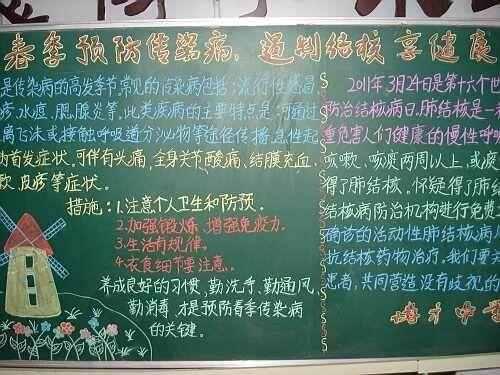 春季预防传染病,远别结核享健康
是传染病的高发季节,常见的传染病包括:流行性感冒
疹、水痘、腮腺炎等,此类疾病的主要特点是:可通过
离飞沫或接触呼吸道分泌物等途径传播,急性起
为首发症状,可伴有头痛,全身关节酸痛,结膜充血,
欬、皮疹等症状。
措施:1.注意个人卫生和防预。
2.加强锻炼,增强免疫力。
3.生活有规律。
4.衣食细节要注意。
养成良好的习惯,勤洗手,勤通风,
勤消毒,才是预防春季传染病
的关键。
2011年3月24日是第十六个世
防治结核病日,肺结核是一
重危害人们健康的慢性呼吸
咳嗽、咳痰两周以上,或痰
得了肺结核。怀疑得了肺
结核病防治机构进行免费
确诊的活动性肺结核病人
抗结核药物治疗。我们要关
患者,共同营造没有歧视的